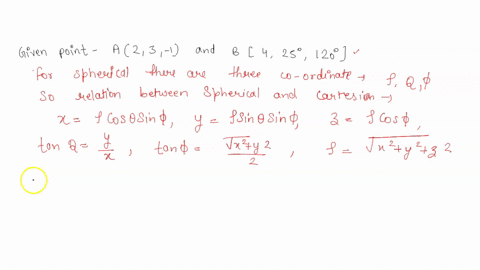 Given point - A(2,3,-1) and B[4, 25°, 120°]
for spherical there are three co-ordinate → ρ, Q, ϕ
So relation between Spherical and Cartesion →
x = ρ Cosθ Sinϕ, y = ρ Sinθ Sinϕ, z = ρ Cosϕ,
tan Q = y/x, tanϕ = √x²+y2/2, ρ = √x²+y²+z2